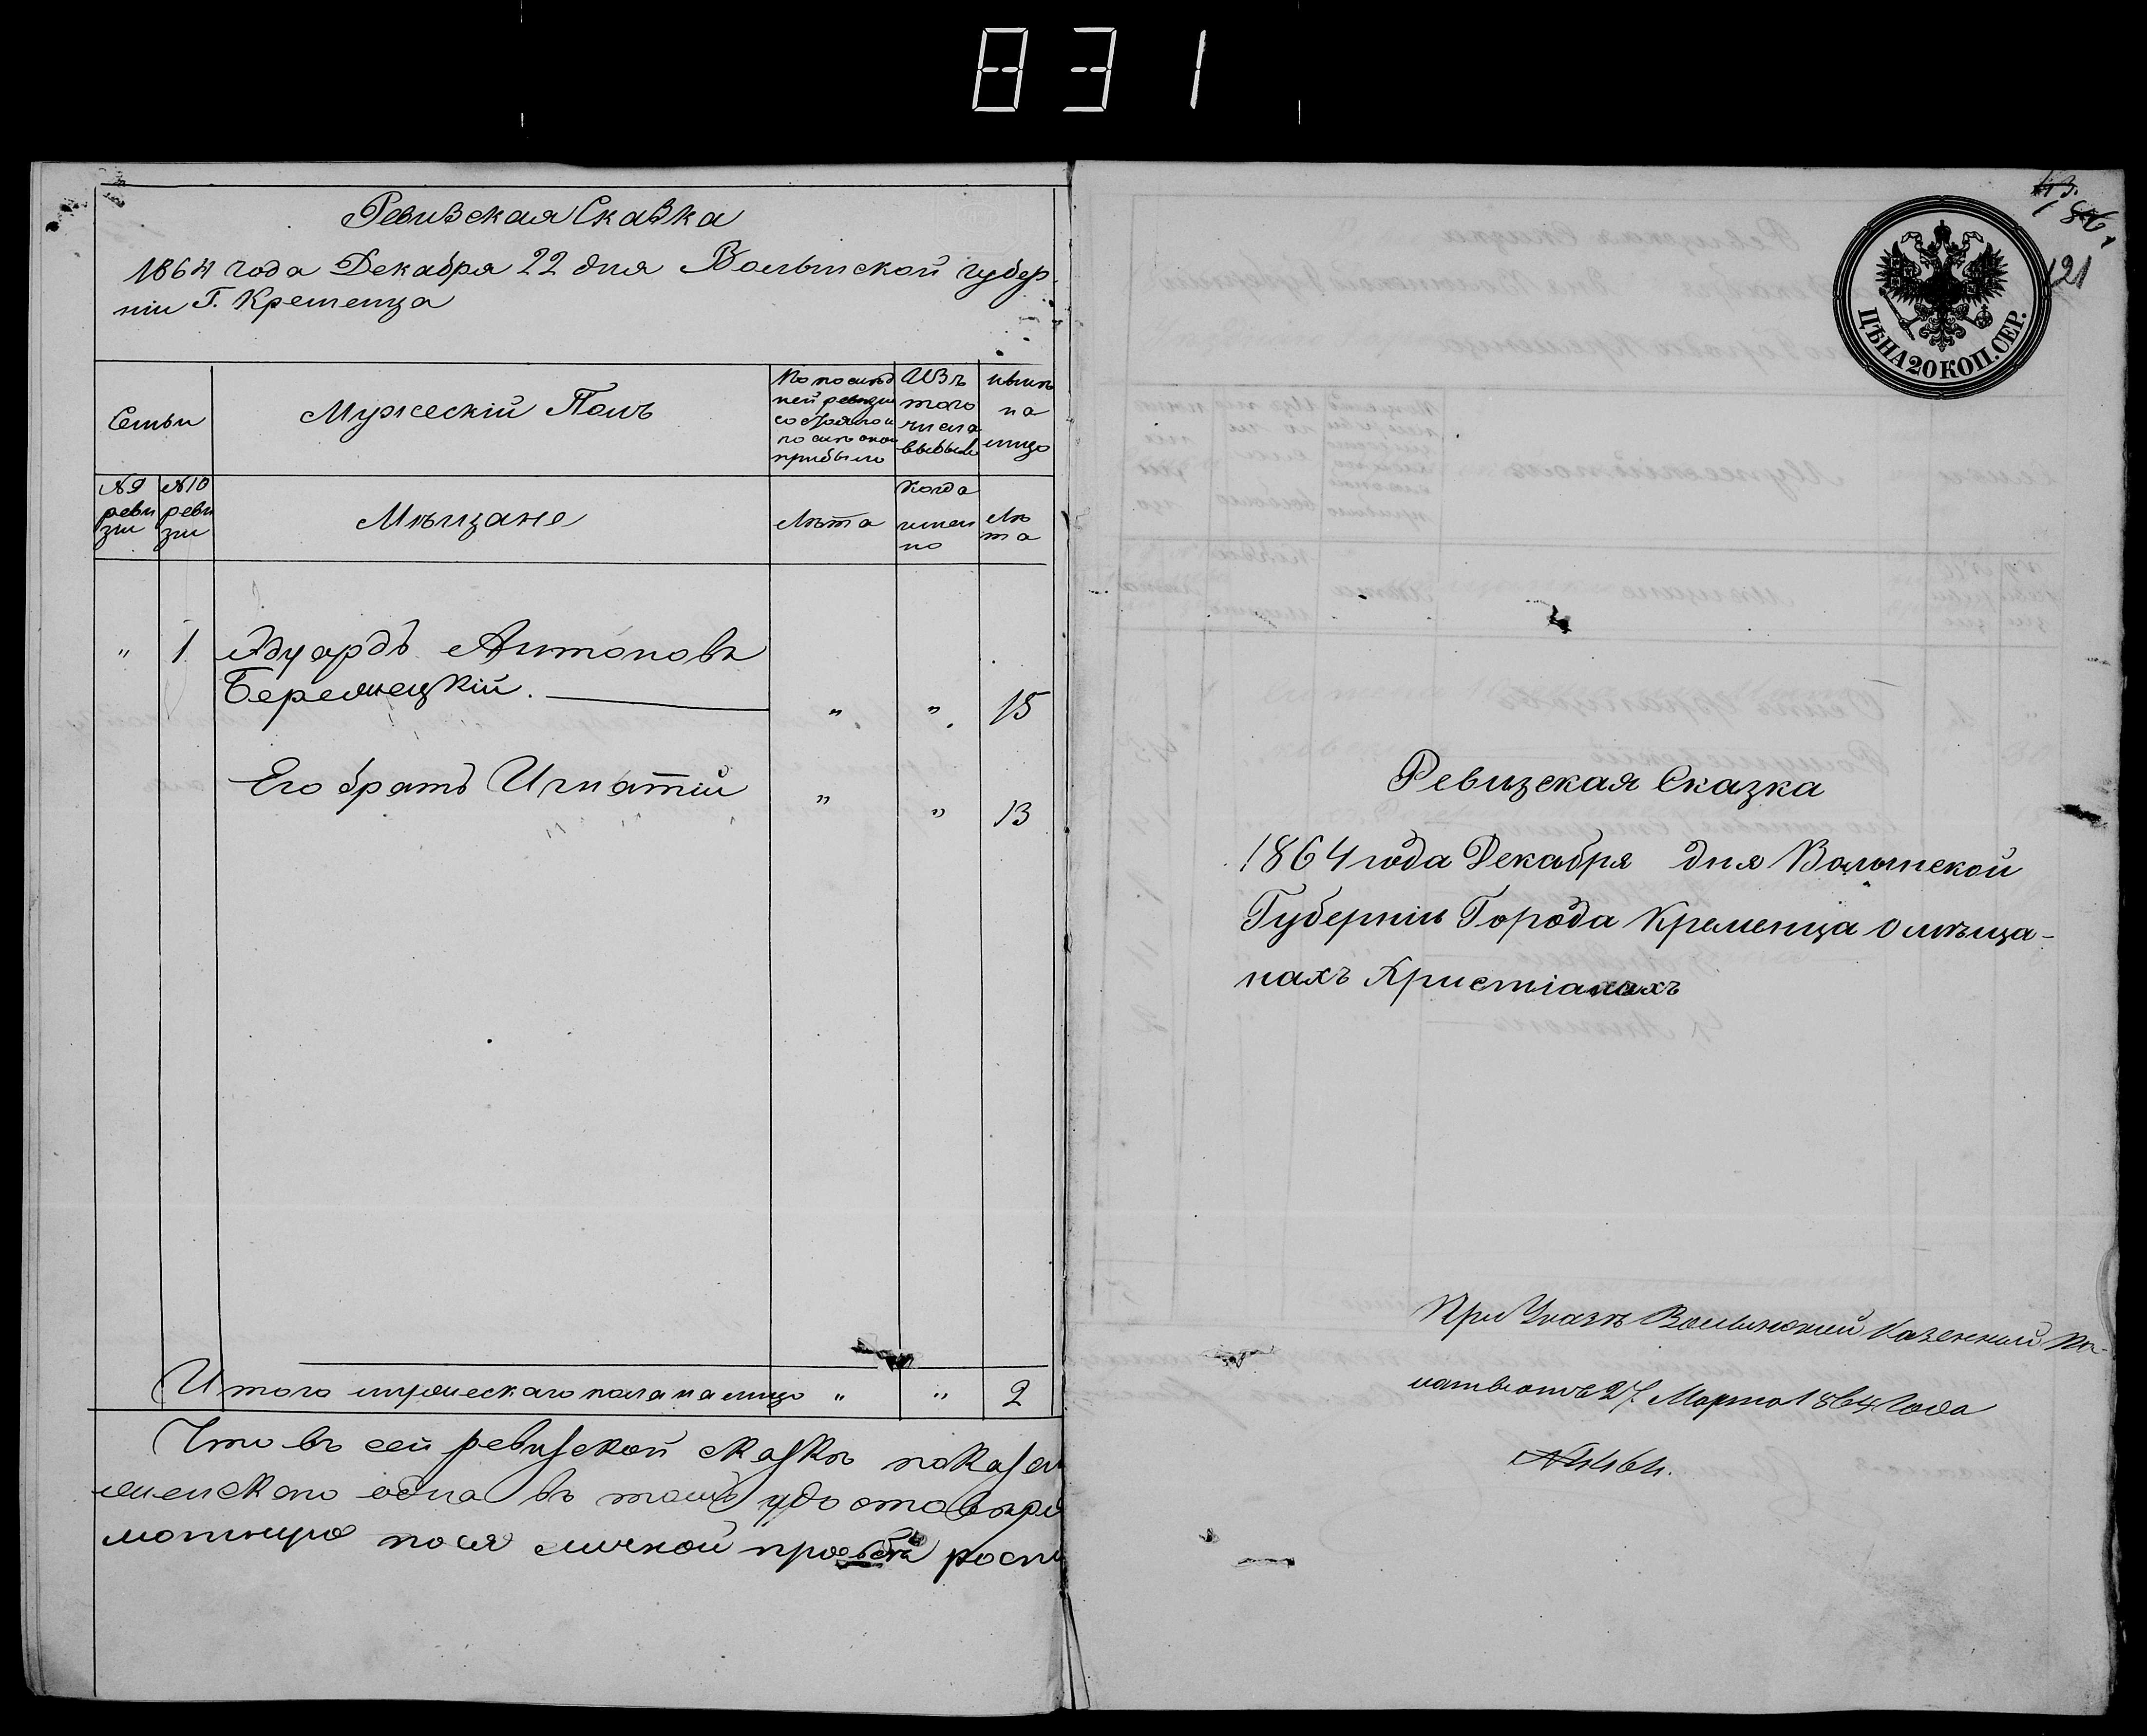 831
Ревизская Сказка
1864 года Декабря 22 дня Волынской губер.
ніи Г. Кременца
Семьи
Мужескій Полъ
По послѣд
ней ревизіи
состояло и
послѣ оной
прибыло
Изъ
того
числа
выбыло
нынѣ
на
лицо
№ 9
реви
зіи
№ 10
реви
зіи
Мѣщане
Лѣта
Когда
имен
но
Лѣ
та
" 1 Эдуардъ Антоновъ
Бережецкій. " " 15
Его братъ Игнатій " " 13
Итого мужескаго пола на лицо " " 2
Что въ сей ревизской сказкѣ показан
женскаго одна въ томъ удостовѣря
рость
43.
86.
121
ЦѢНА 20 КОП. СЕР.
Ревизская Сказка
1864 года Декабря дня Волынской
Губерніи Города Кременца о мѣща-
нахъ Христіанахъ
При Указѣ Волынской Казенной Па-
латы отъ 27. Марта 1864 года
№ 4464.